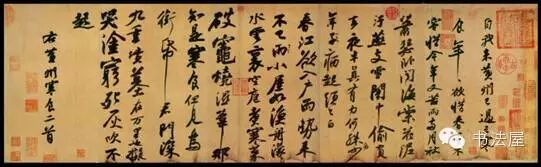 自我來黃州已過三寒
食年年欲惜春春去不
容惜今年又苦雨兩月秋
蕭瑟臥聞海棠花泥
汙燕支雪闇中偷負
去夜半真有力何殊少
年子病起頭已白
春江欲入戶雨勢來
不已雨小屋如漁舟濛濛
水雲裏空庖煮寒菜
破竈燒濕葦那
知是寒食但見烏
銜帋君門深
九重墳墓在万里也擬
哭塗窮死灰吹不
起
右黃州寒食二首
书法屋